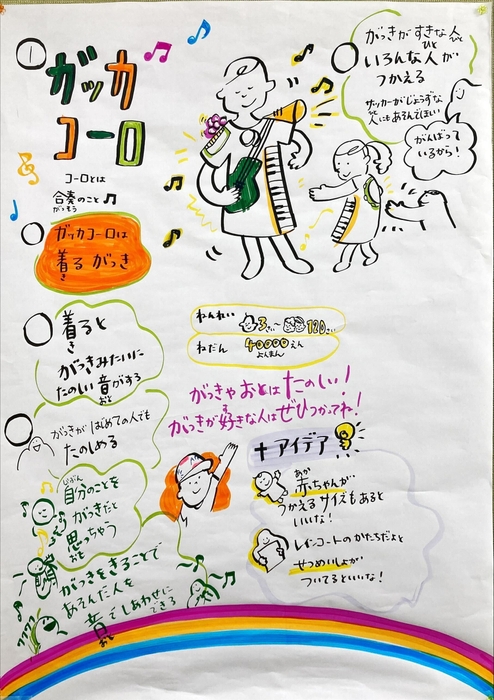 ①
ガッカ
コーロ
コーロとは
合奏のこと
がっそう
ガッカコーロは
着る がっき
き
着ると
き
がっきみたいに
たのしい音がする
おと
がっきが はじめての人でも
たのしめる
じぶん
自分のことを
がっきだと
思っちゃう
おも
がっきをきることで
あえんだ人を
音でしあわせに
できる
おと
がっきがすきな人
ひと
いろんな人が
つかえる
サッカーがじょうずな
人にもあそんでほしい
がんばって
いるから!
ねんれい
3さい〜120さい
ねだん 40000えん
よんまん
がっきやおとはたのしい!
す
がっきが好きな人はぜひつかってね!
+アイデア
あか
赤ちゃんが
つかえるサイズもあると
いいな!
レインコートのかたちだよと
せつめいしょが
ついてるといいな!